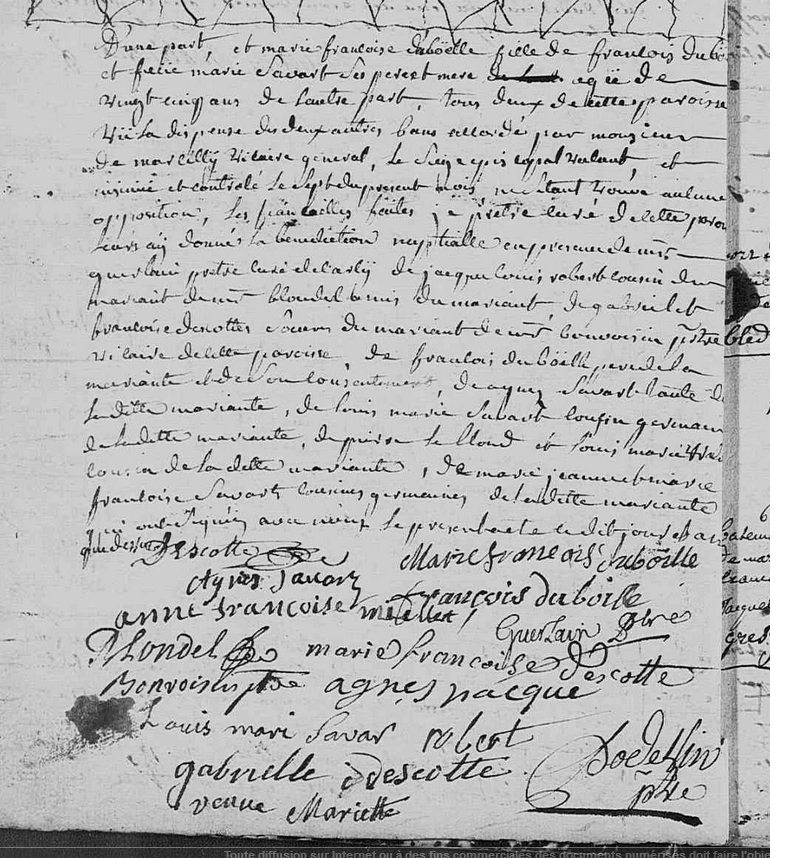 D'une part, et marie francoise duboëlle fille de francois dub
et feüe marie Savart Ses pere et mere agée de
vingt cinq ans de l'autre part, tous deux de cette paroisse
vü la dispense des deux autres bans accordé par monsieur
de marcilly vicaire general, le Siege episcopal vacant, et
insinué et controlé le Sept du present mois, ne s'étant trouvé aucune
opposition, les fiançailles faites, je prêtre curé de cette paroi
leurs ay donnés la benediction nuptialle en presence de mr
guerlain prêtre curé de de jacque louis robert cousin du
mariant de mr blondel amis du mariant, de gabriel et
francoise descottes soeurs du mariant de mr bonvoisin prêtre
vicaire de cette paroisse, de francois duboëlle pere de la
mariante et de son consentement, de agnes Savart tante de
la ditte mariante, de louis marie Savart cousin germain
de la ditte mariante, de pierre le blond et louis marie
cousin de la ditte mariante, de marie jeanne et marie
francoise Savart cousines germaines de la ditte mariante
qui ont Signés avec nous le present acte ledit jour et an
que dessus Descotte Marie francois duboille
Agnes Savart francois duboille
anne francoise millet Guerlain Ptre
Blondel marie francoise Descotte
Bonvoisin ptre agnes pacque
Louis mari Savar robert
gabrielle descotte
venue Mariette ptre
Toute diffusion sur Internet ou à des fins commerciales des documents numérisés doit faire l'obje